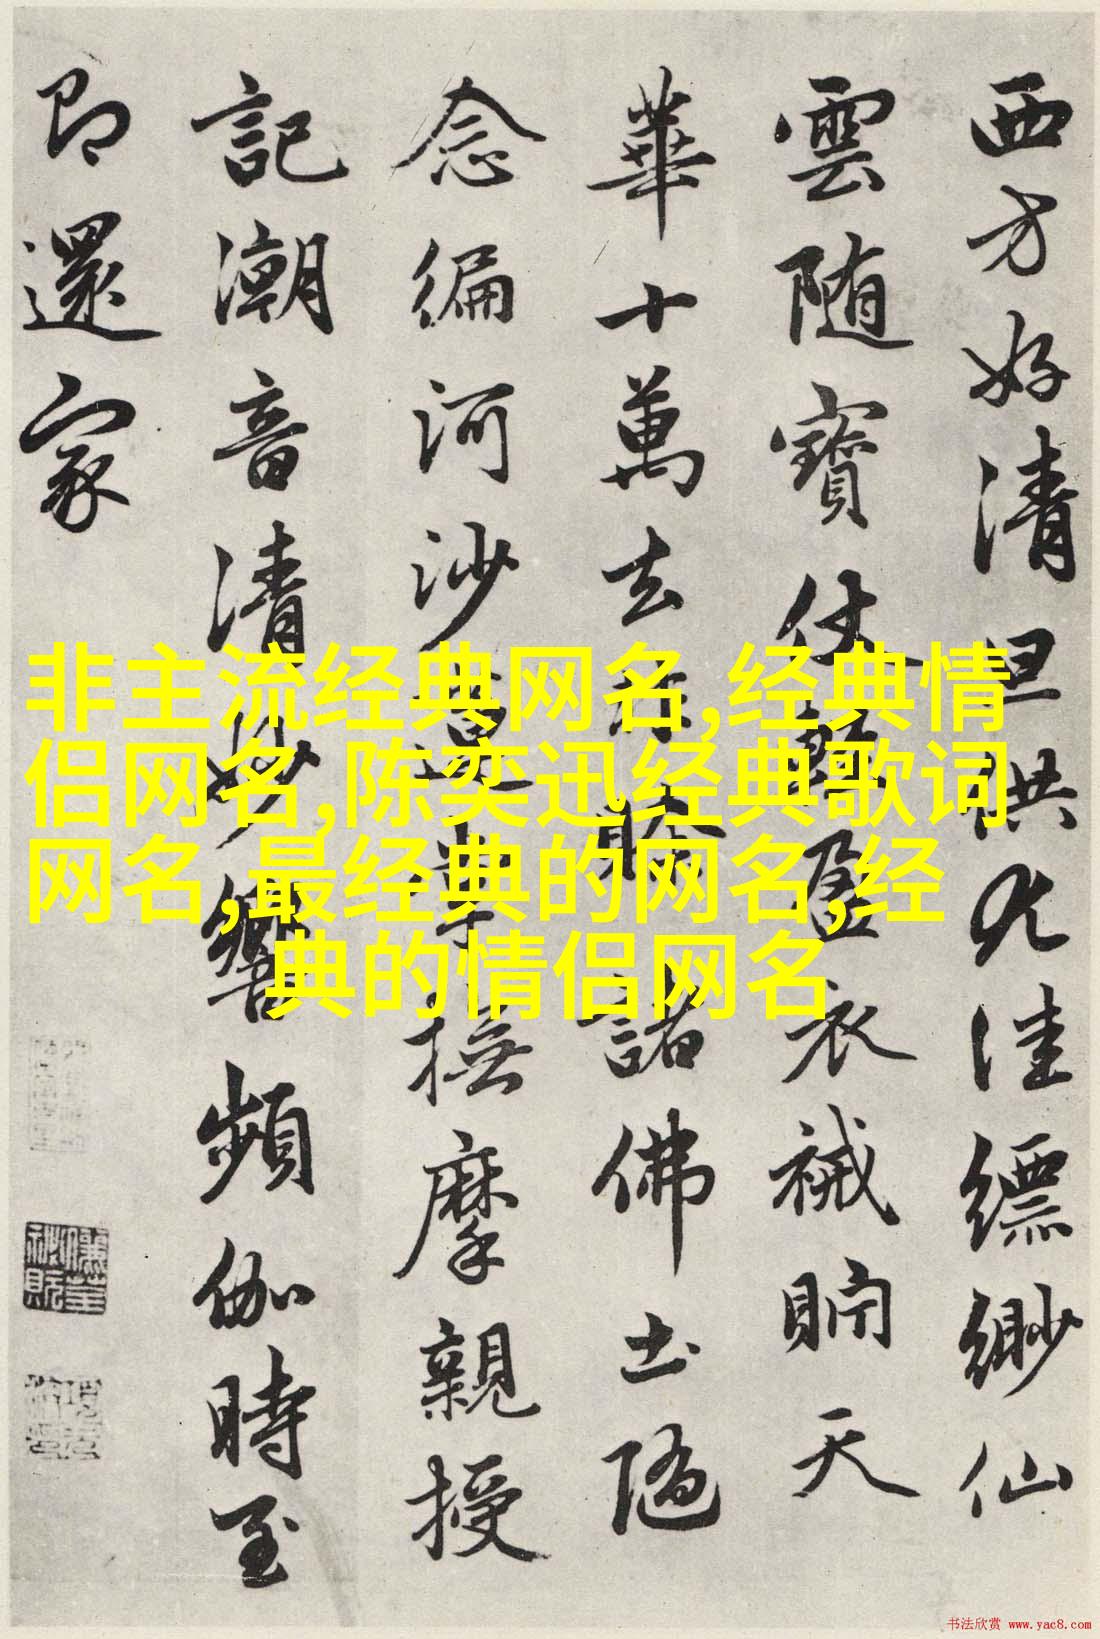 西方好清旦供尤佳縹緲仙
雲随寶仗輕盈衣裓貯天
華十萬去非賒諸佛土隨
念徧河沙掌撫摩親授
記潮音清妙響頻伽時至
即還家
非主流经典网名,经典情
侣网名,陈奕迅经典歌词
网名,最经典的网名,经
典的情侣网名
书法欣赏 www.yac8.com